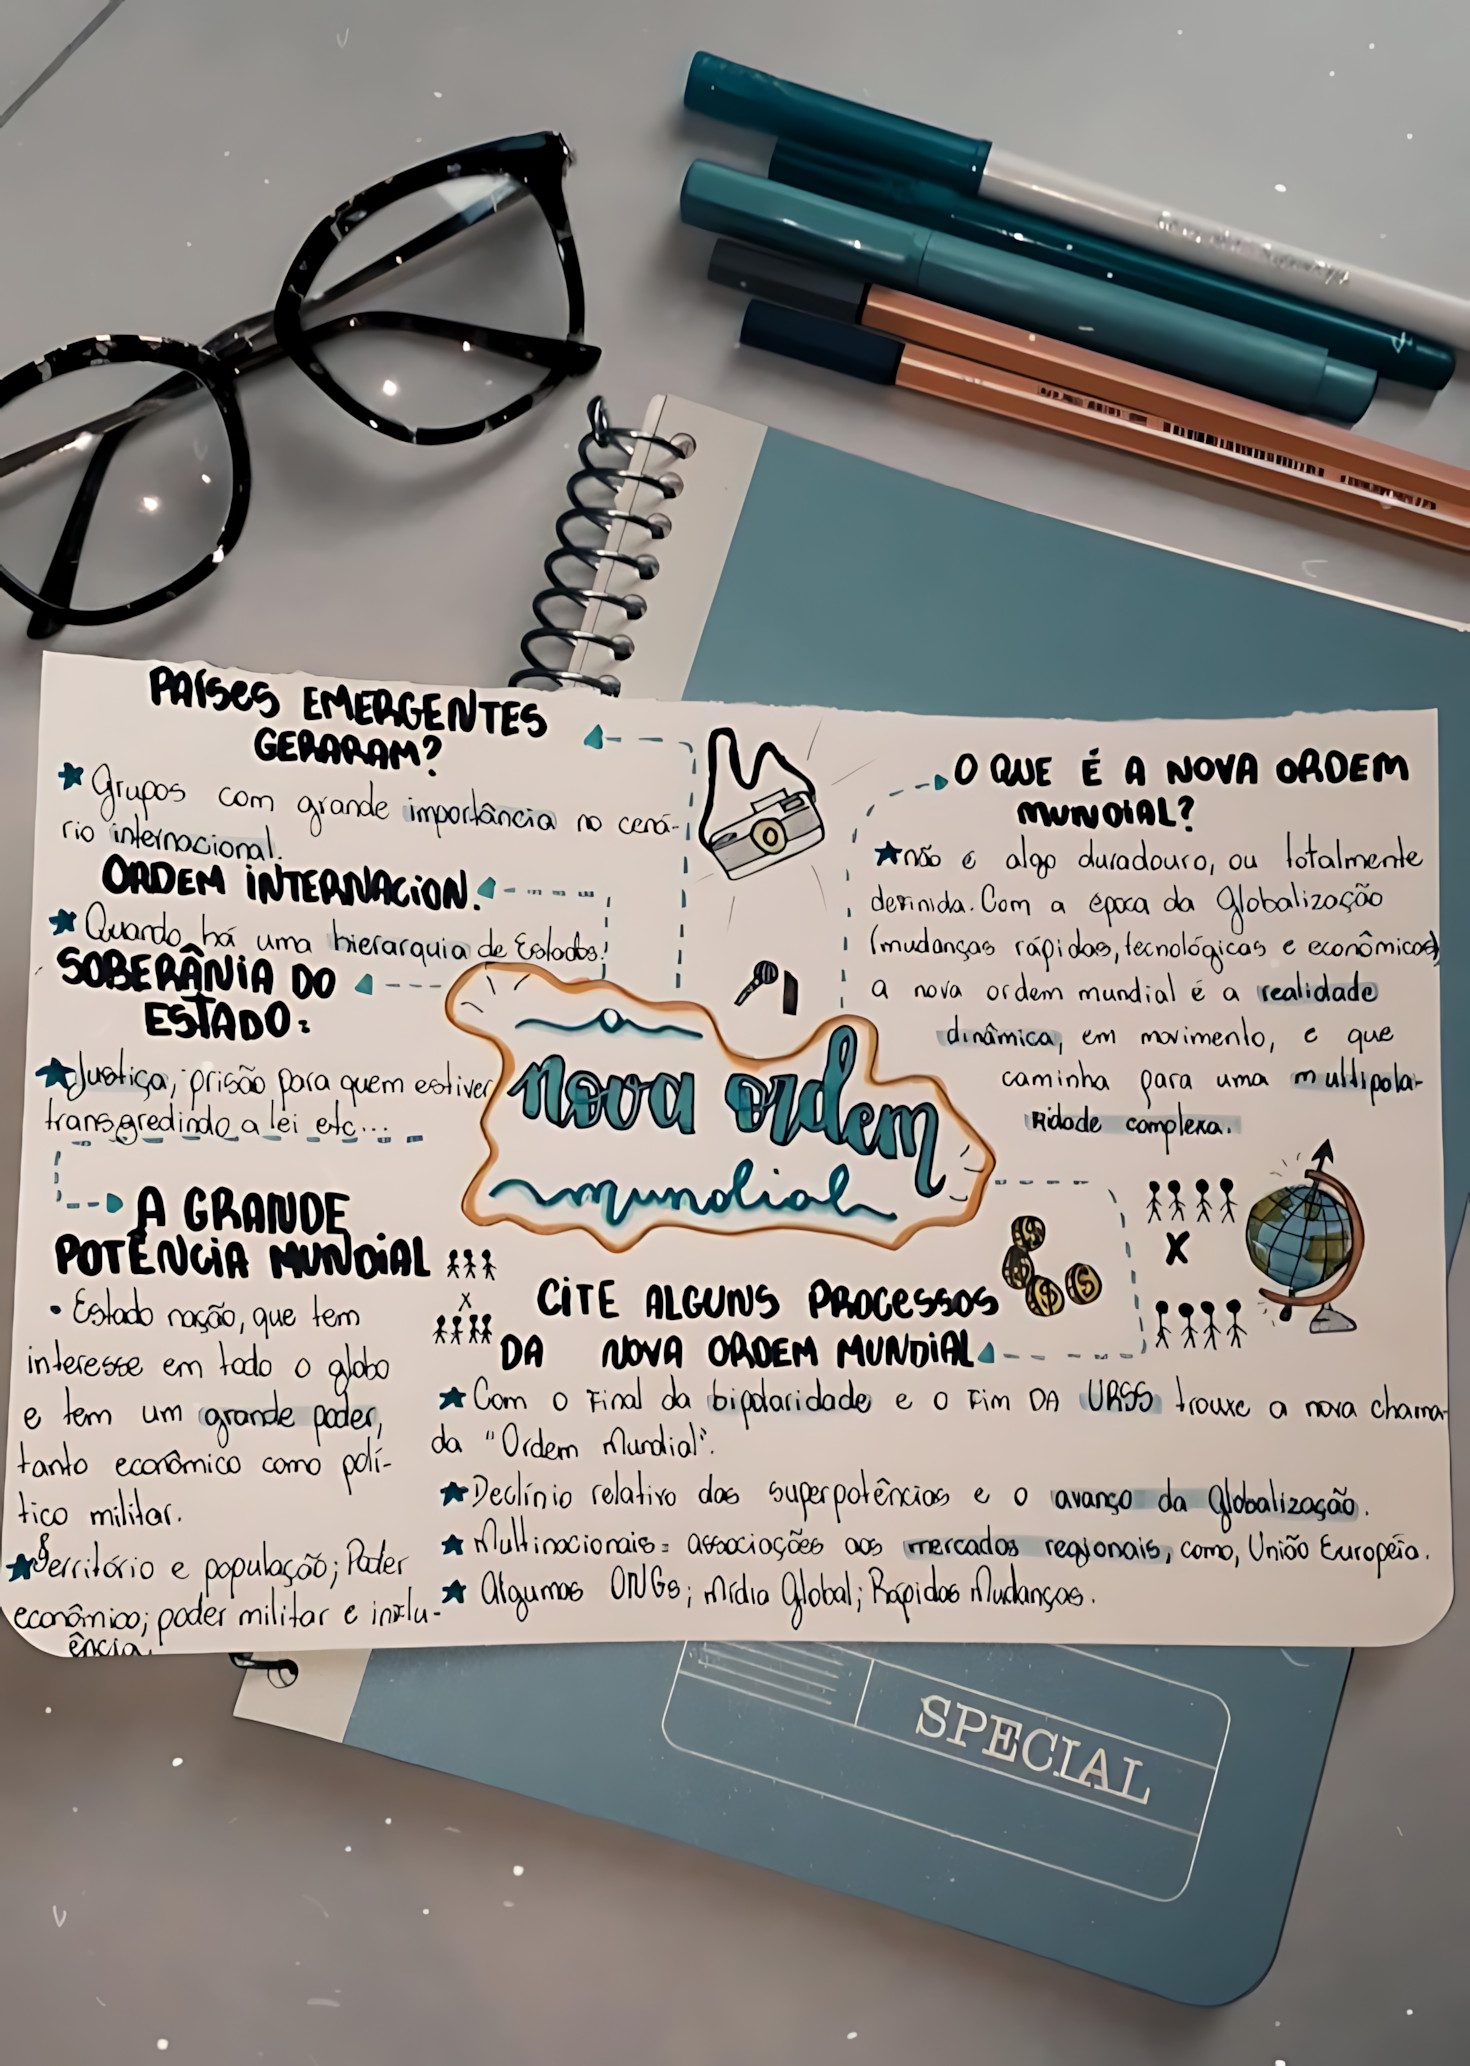 PAÍSES EMERGENTES
GERARAM?
Grupos com grande importância no cená-
rio internacional.
ORDEM INTERNACION.
Quando há uma hierarquia de Estados!
SOBERÂNIA DO
ESTADO:
Justiça, prisão para quem estiver
transgredindo a lei etc...
A GRANDE
POTÊNCIA MUNDIAL
• Estado nação, que tem
interesse em todo o globo
e tem um grande poder,
tanto econômico como polí-
tico militar.
Território e população; Poder
econômico; poder militar e influ-
ência.
nova ordem
mundial
O QUE É A NOVA ORDEM
MUNDIAL?
não é algo duradouro, ou totalmente
definida. Com a época da Globalização
(mudanças rápidas, tecnológicas e econômicas)
a nova ordem mundial é a realidade
dinâmica, em movimento, e que
caminha para uma multipola-
ridade complexa.
X
X
CITE ALGUNS PROCESSOS
DA NOVA ORDEM MUNDIAL
Com o Final da bipolaridade e o Fim DA URSS trouxe a nova chama-
da "Ordem Mundial".
Declínio relativo das superpotências e o avanço da Globalização.
Multinacionais: associações aos mercados regionais, como, União Européia.
Algumas ONGs; mídia Global; Rápidas Mudanças.
SPECIAL